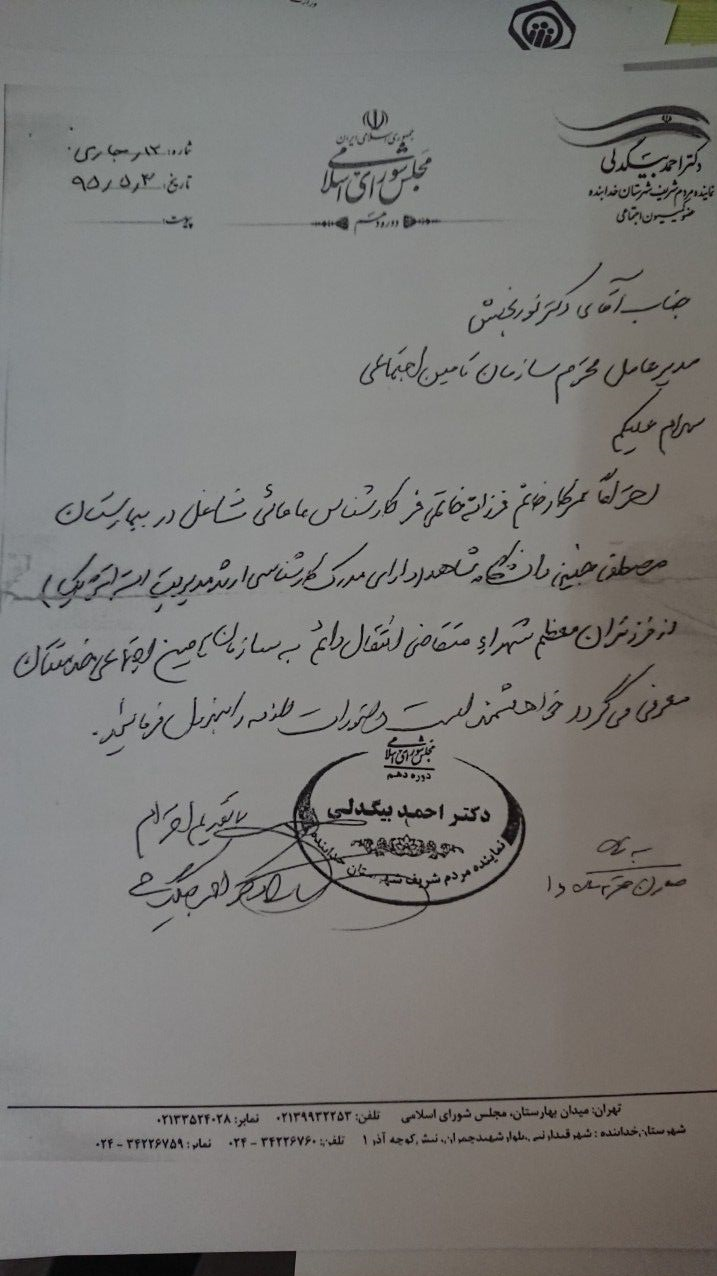 جمهوری اسلامی ایران
مجلس شورای اسلامی
دوره دهم
دکتر احمد بیگدلی
نماینده مردم شریف شهرستان خدابنده
عضو کمیسیون اجتماعی
شماره: ۱۳ر
تاریخ: ۹۵٫۵٫۲
پیوست:
جناب آقای دکتر نوربخش
مدیرعامل محترم سازمان تامین اجتماعی
سلام علیکم
احتراماً سرکار خانم فرزانه خاتمی فر کارشناس مامائی شاغل در بیمارستان
مصطفی خمینی دانشگاه شاهد (دارای مدرک کارشناسی ارشد مدیریت استراتژیک)
از فرزندان معظم شهداء متقاضی انتقال دائم به سازمان تامین اجتماعی خدمتتان
معرفی می گردد خواهشمند است دستورات لازمه را مبذول فرمائید.
با تقدیم احترام
مجلس شورای اسلامی
دوره دهم
دکتر احمد بیگدلی
نماینده مردم شریف شهرستان خدابنده
تهران: میدان بهارستان، مجلس شورای اسلامی تلفن: ۰۲۱۳۹۹۳۲۲۵۳ نمابر: ۰۲۱۳۳۵۲۴۰۲۸
شهرستان خدابنده: شهر قیدار نبی، بلوار شهید چمران، نبش کوچه آذر ۱ تلفن: ۳۴۲۲۶۷۶۰ - ۰۲۴ نمابر: ۳۴۲۲۶۷۵۹ - ۰۲۴